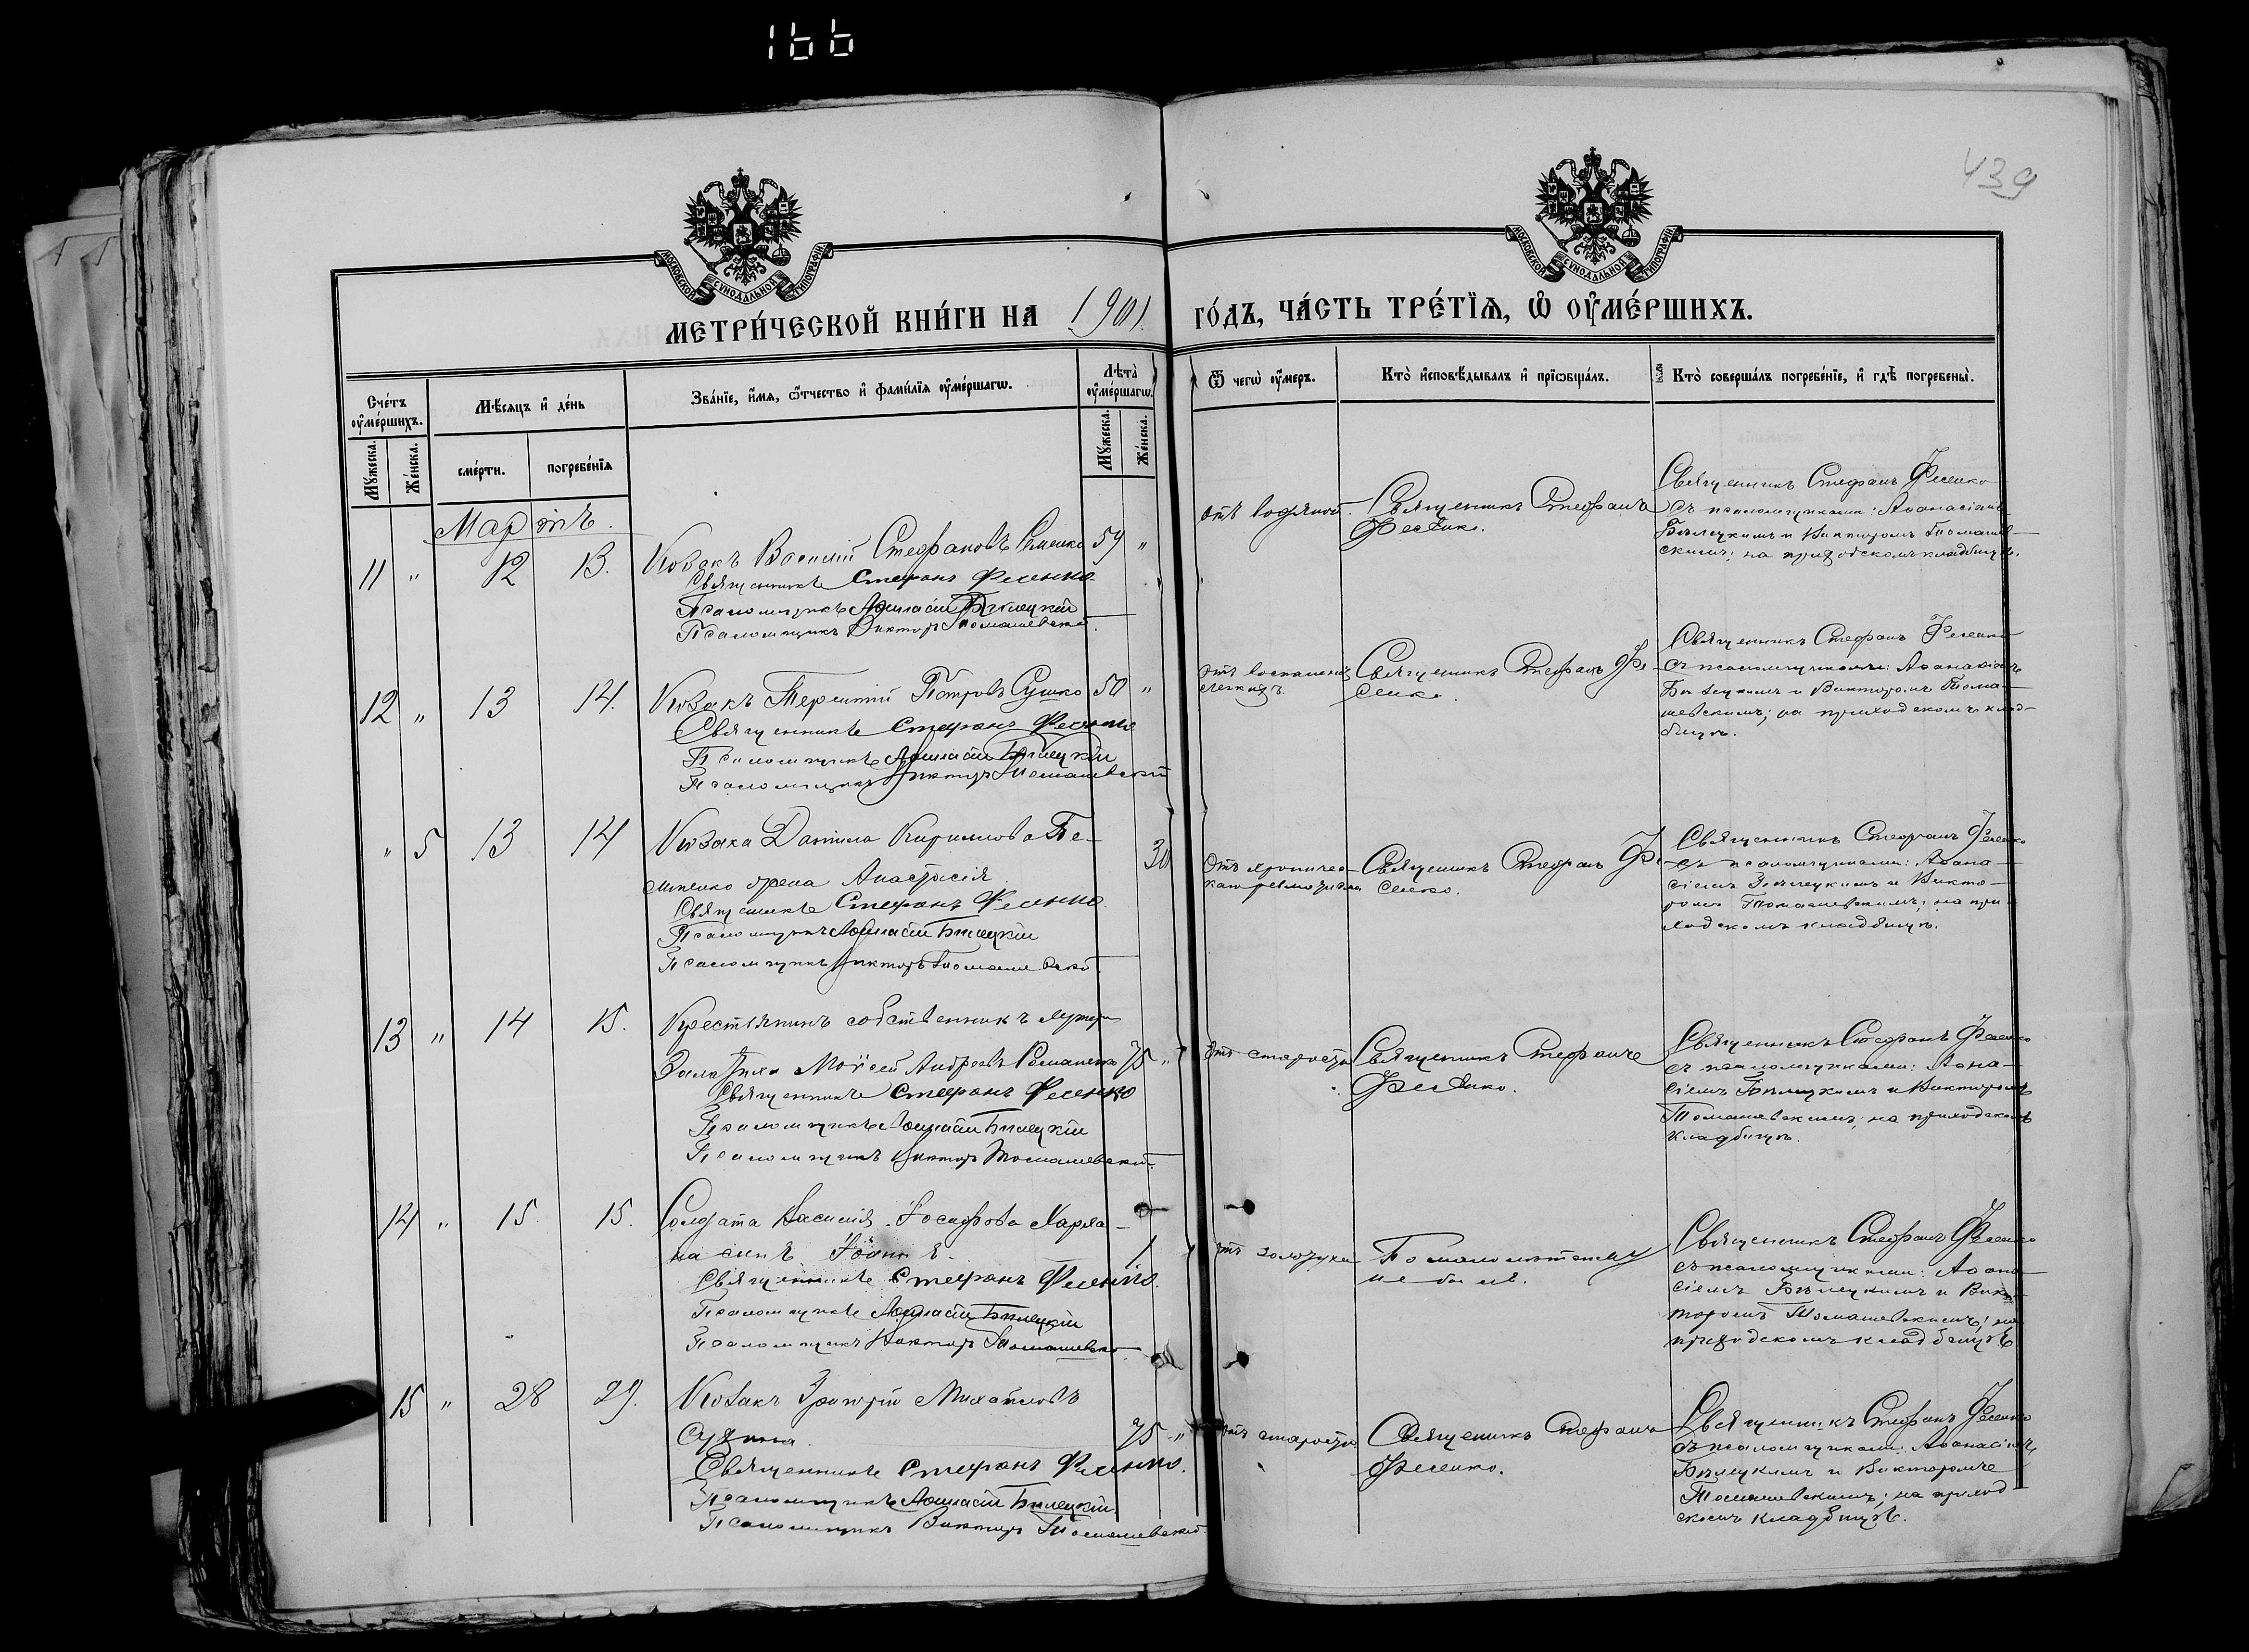 166
439
МОСКОВСКОЙ СУНОДАЛЬНОЙ ТИПОГРАФІИ
МОСКОВСКОЙ СУНОДАЛЬНОЙ ТИПОГРАФІИ
МЕТРИ́ЧЕСКОЙ КНИ́ГИ НА 1901 ГО́ДЪ, ЧА́СТЬ ТРЕ́ТЇѦ, Ѡ҆ ОУ҆МЕ́РШИХЪ.
Сче́тъ оу҆ме́ршихъ.
Мѣ́сѧцъ и҆ де́нь
Зва́нїе, и҆́мѧ, ѻ҆́тчество и҆ фами́лїѧ оу҆ме́ршагѡ.
Лѣ́та оу҆ме́ршагѡ.
Ѿ чегѡ̀ оу҆́меръ.
Кто̀ и҆сповѣ́дывалъ и҆ прїѡбща́лъ.
Кто̀ соверша́лъ погребе́нїе, и҆ гдѣ̀ погребены̀.
Мꙋ́жеска.
Же́нска.
сме́рти.
погребе́нїѧ
Мꙋ́жеска.
Же́нска.
Мартъ.
11 " 12 13. Козакъ Василій Стефановъ 59 "
Священникъ Стефанъ Фесенко
Псаломщикъ Аѳанасій Бѣлецкій
Псаломщикъ Викторъ Томашевскій.
отъ водяной.
Священникъ Стефанъ
Фесенко.
Священникъ Стефанъ Фесенко
съ псаломщиками: Аѳанасіемъ
Бѣлецкимъ и Викторомъ Томашев-
скимъ; на приходскомъ кладбищѣ.
12 " 13 14. Козакъ Терентій Петровъ Сушко 50 "
Священникъ Стефанъ Фесенко
Псаломщикъ Аѳанасій Бѣлецкій
Псаломщикъ Викторъ Томашевскій
Отъ воспаленія
легкихъ.
Священникъ Стефанъ Фе-
сенко.
Священникъ Стефанъ Фесенко
съ псаломщиками: Аѳанасіемъ
Бѣлецкимъ и Викторомъ Тома-
шевскимъ; на приходскомъ клад-
бищѣ.
" 5 13 14 Козака Данила Кириллова
жена Анастасія 30
Священникъ Стефанъ Фесенко
Псаломщикъ Аѳанасій Бѣлецкій
Псаломщикъ Викторъ Томашевскій.
Отъ хроничес-
каго ревматизма
Священникъ Стефанъ Фе-
сенко.
Священникъ Стефанъ Фесенко
съ псаломщиками: Аѳана-
сіемъ Бѣлецкимъ и Викто-
ромъ Томашевскимъ; на при-
ходскомъ кладбищѣ.
13 " 14 15. Крестьянинъ собственникъ
Моѵсей Андреевъ Романенко 75 "
Священникъ Стефанъ Фесенко
Псаломщикъ Аѳанасій Бѣлецкій
Псаломщикъ Викторъ Томашевскій
Отъ старости
Священникъ Стефанъ
Фесенко.
Священникъ Стефанъ Фесенко
съ псаломщиками: Аѳана-
сіемъ Бѣлецкимъ и Викторомъ
Томашевскимъ; на приходскомъ
кладбищѣ.
14 " 15. 15. Солдата Василія Іосифова
на сынъ Іоаннъ 1
Священникъ Стефанъ Фесенко.
Псаломщикъ Аѳанасій Бѣлецкій
Псаломщикъ Викторъ Томашевскій.
отъ золотухи
По малолѣтству
не былъ.
Священникъ Стефанъ Фесенко
съ псаломщиками: Аѳана-
сіемъ Бѣлецкимъ и Вик-
торомъ Томашевскимъ; на
приходскомъ кладбищѣ
15 " 28 29. Козакъ Григорій Михайловъ
75 "
Священникъ Стефанъ Фесенко.
Псаломщикъ Аѳанасій Бѣлецкій.
Псаломщикъ Викторъ Томашевскій.
отъ старости
Священникъ Стефанъ
Фесенко.
Священникъ Стефанъ Фесенко
съ псаломщиками: Аѳанасіемъ
Бѣлецкимъ и Викторомъ
Томашевскимъ; на приход
скомъ кладбищѣ.